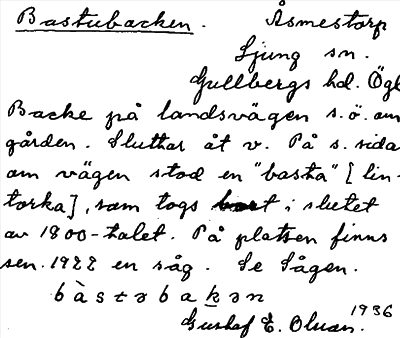 Bastubacken. Åsmestorp
Ljung sn.
Gullbergs hd. Ögl
Backe på landsvägen s.ö. om
gården. Sluttar åt v. På s. sida
om vägen stod en "basta" [lin-
torka], som togs bort i slutet
av 1800-talet. På platsen finns
sen. 1922 en såg. Se Sågen.
bàstəbakən
Gustaf E. Olsson. 1936